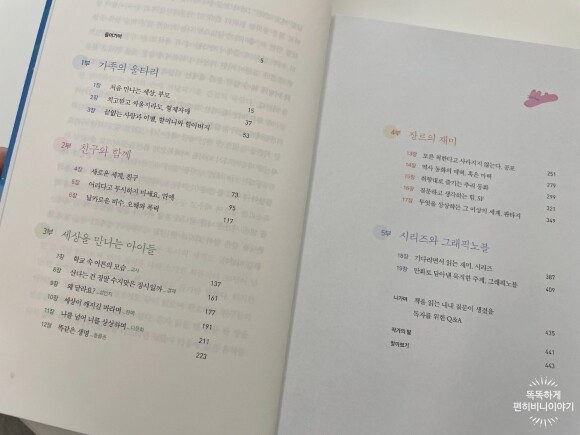 들어가며 5
1부 가족의 울타리
1장 처음 만나는 세상, 부모 15
2장 치고받고 싸울지라도, 형제자매 37
3장 끝없는 사랑과 이별, 할머니와 할아버지 53
2부 친구와 함께
4장 새로운 세계, 친구 73
5장 어리다고 무시하지 마세요, 연애 95
6장 날카로운 비수, 오해와 폭력 117
3부 세상을 만나는 아이들
7장 학교 속 어른의 모습_교사 137
8장 산다는 건 정말 수지맞은 장사일까_경제 161
9장 왜 달라요?_ 177
10장 세상이 깨지길 바라며_장애 191
11장 나를 넘어 너를 상상하며_다문화 211
12장 똑같은 생명_동물권 223
4부 장르의 재미
13장 모든 착한다고 사라지지 않는다, 공포 251
14장 역사 동화의 매력, 혹은 마력 265
15장 취향대로 즐기는 추리 동화 291
16장 질문하고 생각하는 힘, SF 321
17장 무엇을 상상하든 그 이상의 세계, 판타지 349
5부 시리즈와 그래픽노블
18장 기다리면서 읽는 재미, 시리즈 387
19장 만화로 담아낸 묵직한 주제, 그래픽노블 409
나가며 책을 읽는 내내 질문이 생겼을
독자를 위한 Q&A 435
작가의 말 441
찾아보기 443
똑똑하게
편히비니이야기